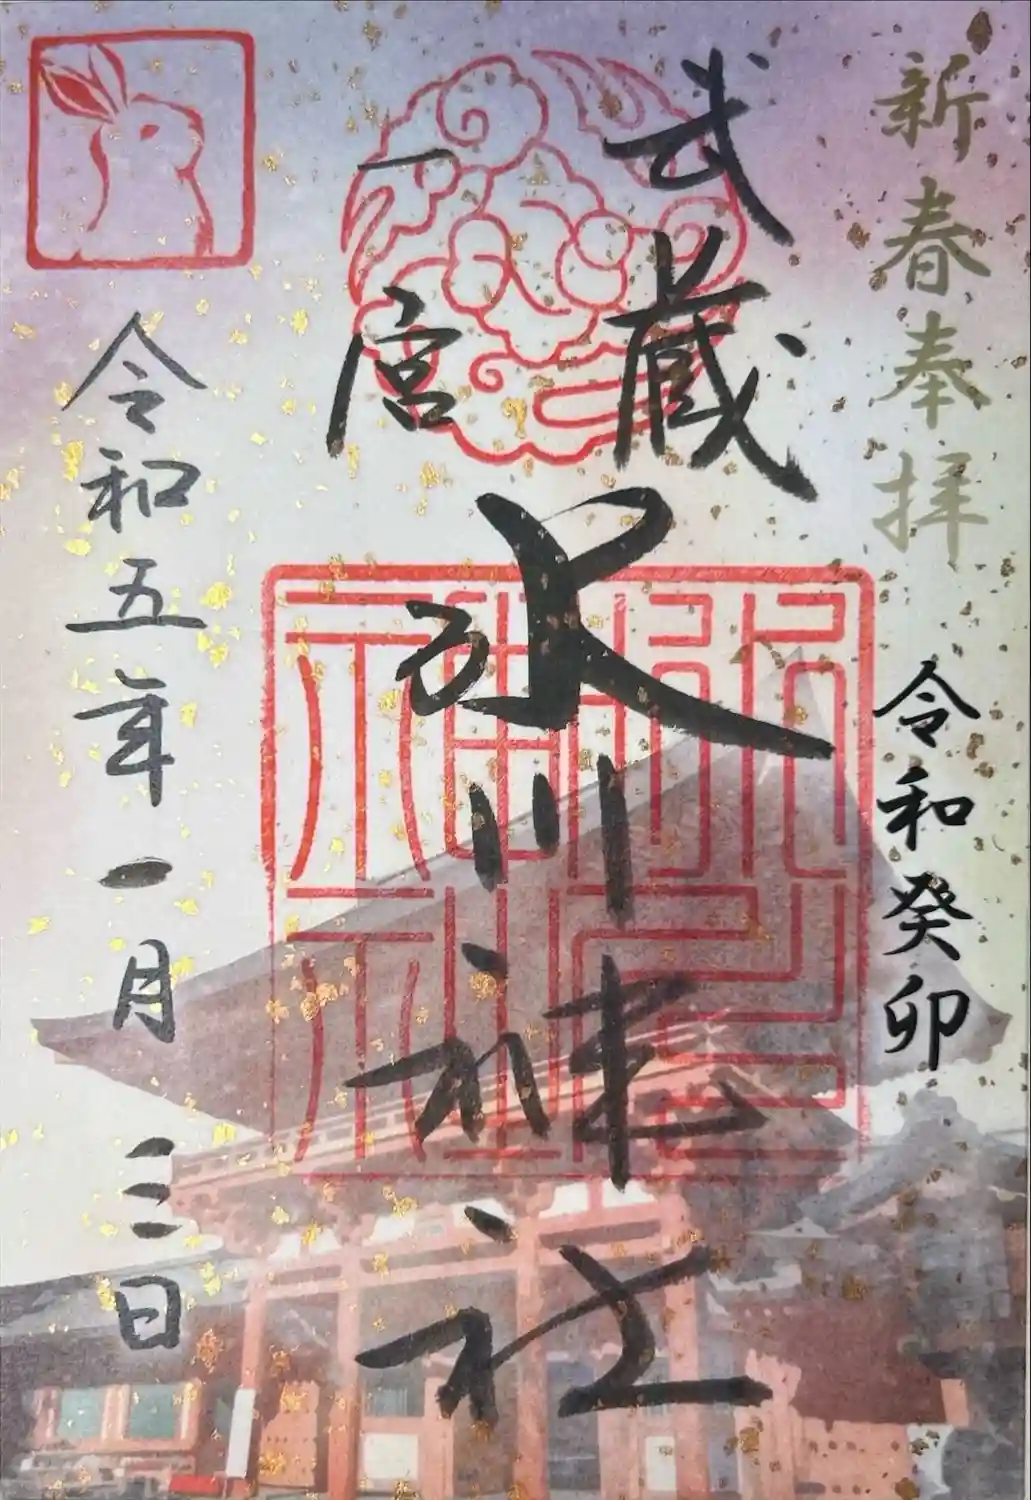 新春奉拝
令和癸卯
武蔵
一宮
氷川神社
氷川神社
令和五年一月三日